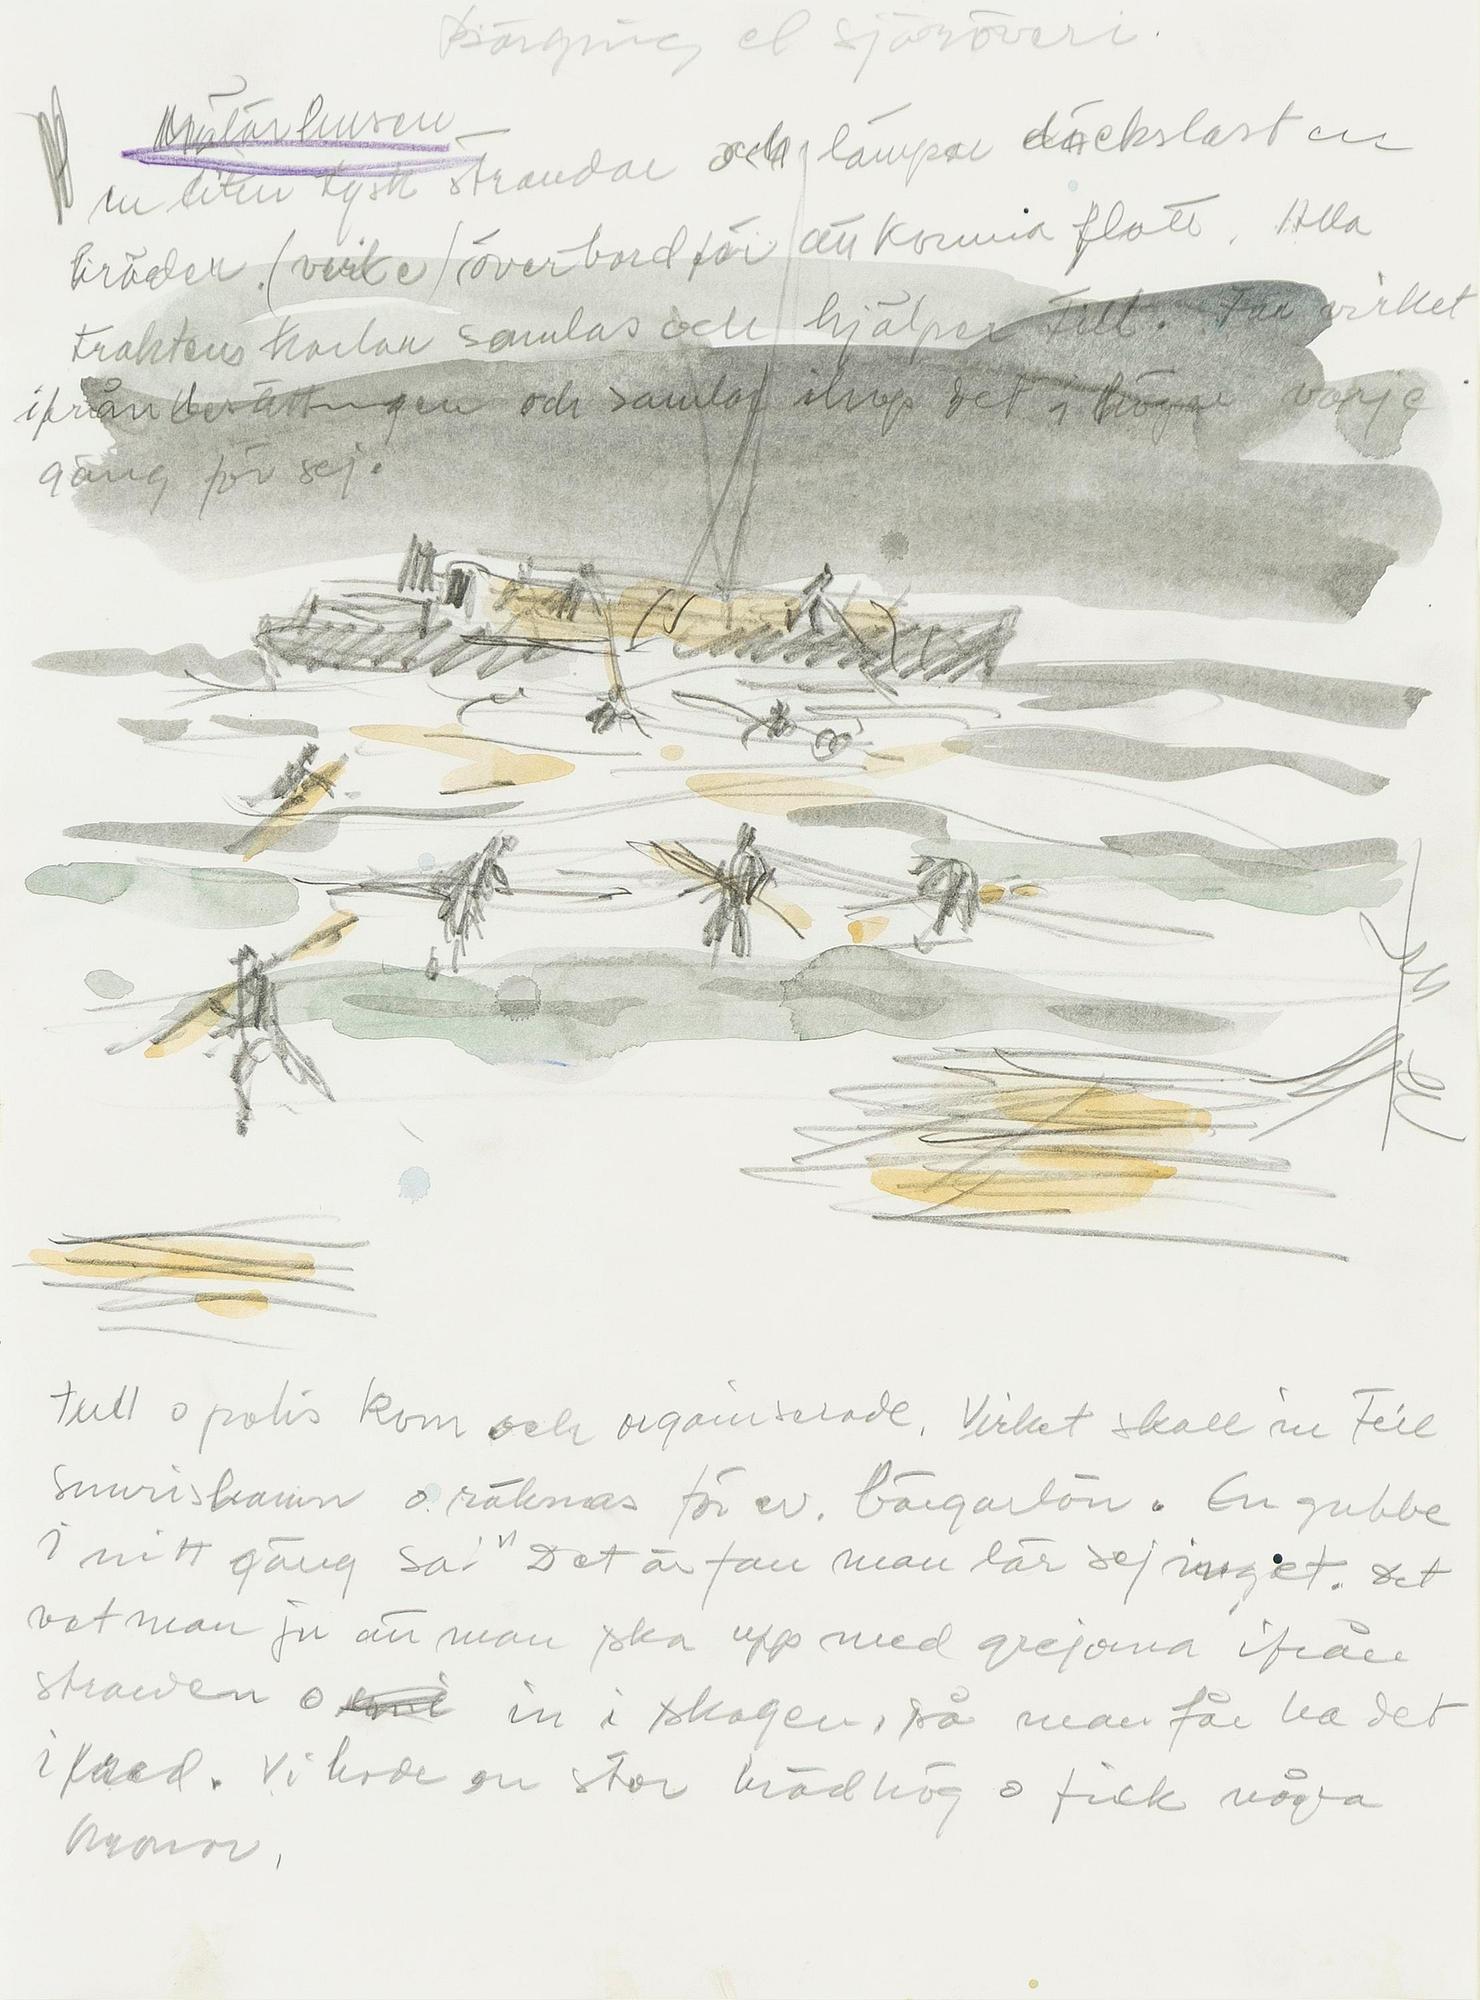 Bärgning el sjöröveri.
Mälarhusen
en liten tysk strandar och lämpar däckslasten
bräder. (virke) överbord för att komma flott. Alla
traktens karlar samlas och hjälper till. Tar virket
ifrån besättningen och samlar ihop det i högar varje
gäng för sej.
tull o polis kom och organiserade. Virket skall in till
Simrishamn o räknas för ev. bärgarlön. En gubbe
i mitt gäng sa: "Det är fan man lär sej inget. Det
vet man ju att man ska upp med grejorna ifrån
stranden o in i skogen, så man får ha det
i fred. Vi hade en stor brädhög o fick några
kronor.